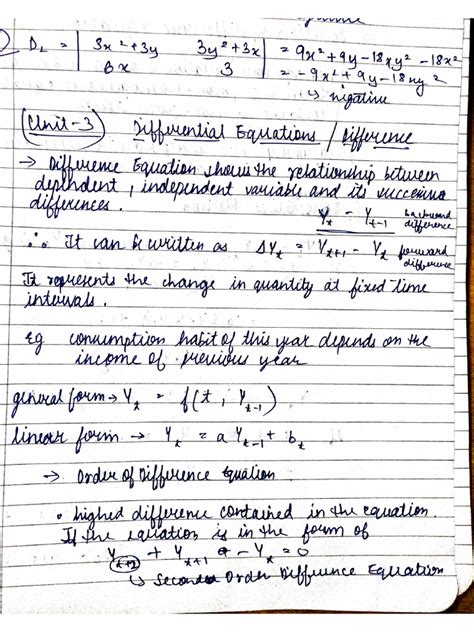 D₁ = | 3x²+3y   3y²+3x | = 9x²+9y-18xy²-18x²
6x   3 | = -9x²+9y-18xy²
↳ negative
(Unit-3) Differential Equations / Difference
→ Difference Equation shows the relationship between
dependent, independent variable and its successive
differences.
Yₜ - Yₜ₋₁ backward difference
∴ It can be written as ΔYₜ = Yₜ₊₁ - Yₜ forward difference
It represents the change in quantity at fixed time
intervals.
Eg consumption habit of this year depends on the
income of previous year
general form → Yₜ = f(t, Yₜ₋₁)
linear form → Yₜ = a Yₜ₋₁ + bₜ
→ Order of Difference Equation
• highest difference contained in the equation.
If the equation is in the form of
Yₜ₊₂ + Yₜ₊₁ - Yₜ = 0
↳ Second Order Difference Equation